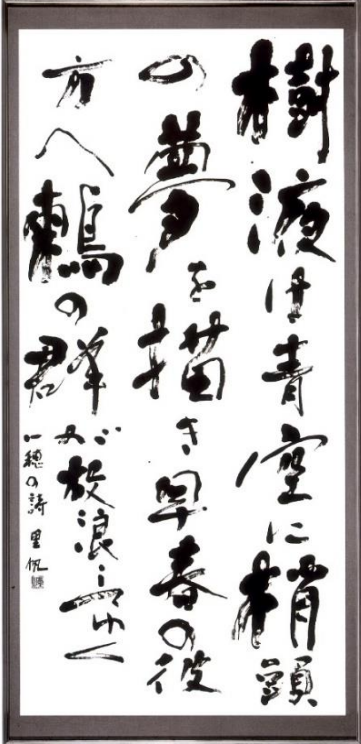 樹液は青空に梢頭
の夢を描き早春の彼
方へ鶫の群が放浪ゆく
一穂の詩 里